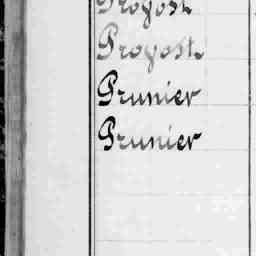 Provost
Provost
Prunier
Prunier